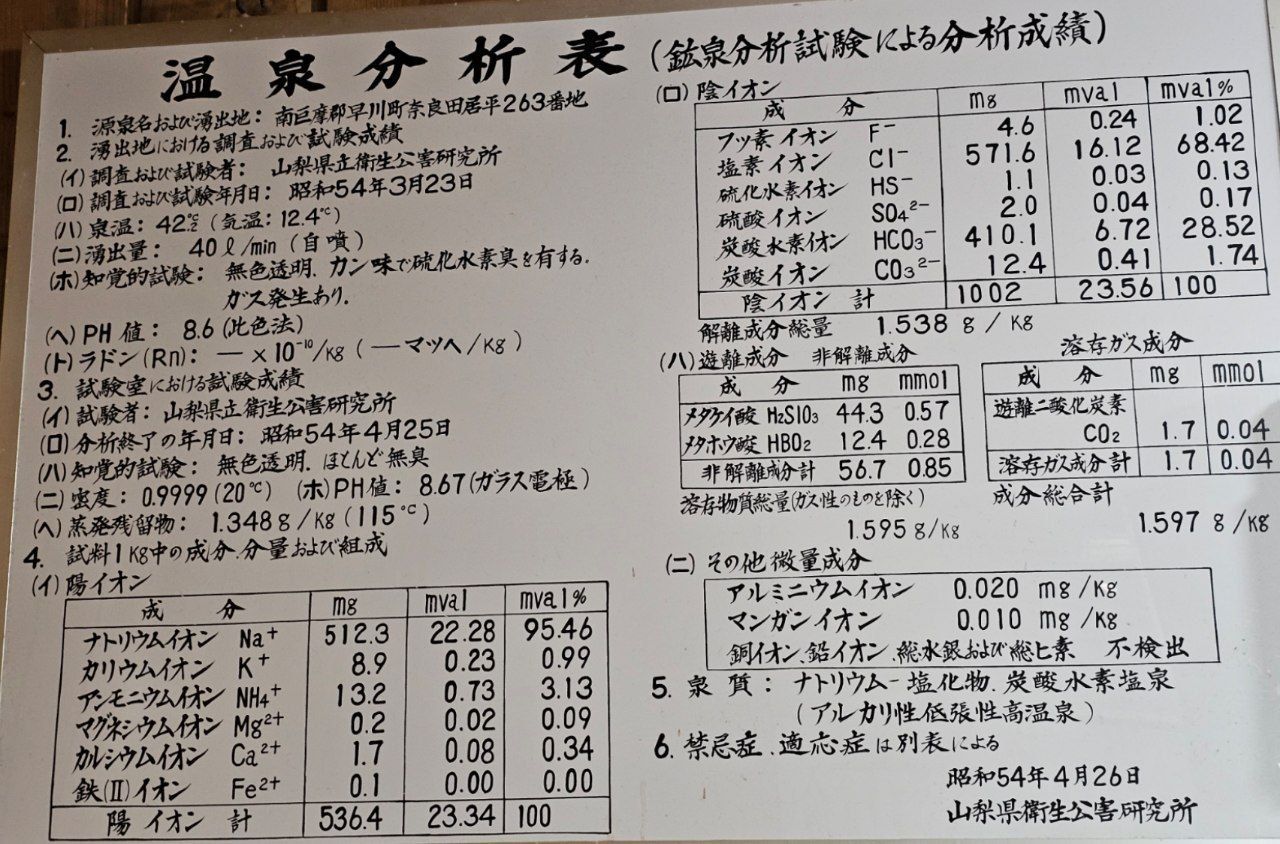 温泉分析表(鉱泉分析試験による分析成績)
1. 源泉名および湧出地: 南巨摩郡早川町奈良田居平263番地
2. 湧出地における調査および試験成績
(イ)調査および試験者: 山梨県立衛生公害研究所
(ロ)調査および試験年月日: 昭和54年3月23日
(ハ)泉温: 42℃ (気温: 12.4℃)
(ニ)湧出量: 40ℓ/min (自噴)
(ホ)知覚的試験: 無色透明、カン味で硫化水素臭を有する.
ガス発生あり.
(ヘ)PH値: 8.6(比色法)
(ト)ラドン(Rn): — ×10⁻¹⁰/Kg (—マッヘ/Kg)
3. 試験室における試験成績
(イ)試験者: 山梨県立衛生公害研究所
(ロ)分析終了の年月日: 昭和54年4月25日
(ハ)知覚的試験: 無色透明、ほとんど無臭
(ニ)密度: 0.9999(20℃) (ホ)PH値: 8.67(ガラス電極)
(ヘ)蒸発残留物: 1.348g/Kg(115℃)
4. 試料1Kg中の成分、分量および組成
(イ)陽イオン
成 分 mg mval mval%
ナトリウムイオン Na⁺ 512.3 22.28 95.46
カリウムイオン K⁺ 8.9 0.23 0.99
アンモニウムイオン NH₄⁺ 13.2 0.73 3.13
マグネシウムイオン Mg²⁺ 0.2 0.02 0.09
カルシウムイオン Ca²⁺ 1.7 0.08 0.34
鉄(Ⅱ)イオン Fe²⁺ 0.1 0.00 0.00
陽イオン計 536.4 23.34 100
(ロ)陰イオン
成 分 mg mval mval%
フッ素イオン F⁻ 4.6 0.24 1.02
塩素イオン Cl⁻ 571.6 16.12 68.42
硫化水素イオン HS⁻ 1.1 0.03 0.13
硫酸イオン SO₄²⁻ 2.0 0.04 0.17
炭酸水素イオン HCO₃⁻ 410.1 6.72 28.52
炭酸イオン CO₃²⁻ 12.4 0.41 1.74
陰イオン計 1002 23.56 100
解離成分総量 1.538g/Kg
(ハ)遊離成分 非解離成分
成 分 mg mmol
メタケイ酸 H₂SIO₃ 44.3 0.57
メタホウ酸 HBO₂ 12.4 0.28
非解離成分計 56.7 0.85
溶存物質総量(ガス性のものを除く)
1.595g/Kg
溶存ガス成分
成 分 mg mmol
遊離二酸化炭素
CO₂ 1.7 0.04
溶存ガス成分計 1.7 0.04
成分総合計
1.597g/Kg
(ニ)その他微量成分
アルミニウムイオン 0.020 mg/Kg
マンガンイオン 0.010 mg/Kg
銅イオン、鉛イオン、総水銀および総ヒ素 不検出
5. 泉質: ナトリウム-塩化物、炭酸水素塩泉
(アルカリ性低張性高温泉)
6. 禁忌症、適応症は別表による
昭和54年4月26日
山梨県衛生公害研究所